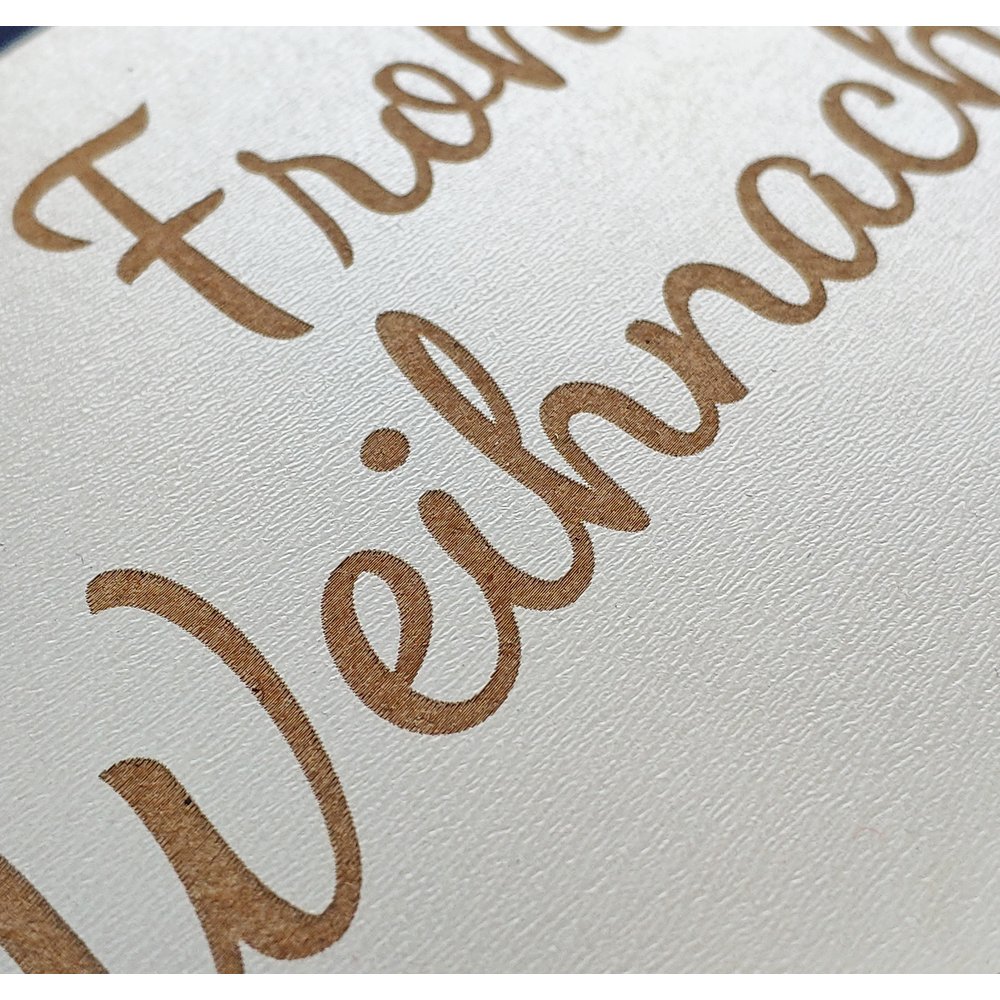 Froh
Weihnach